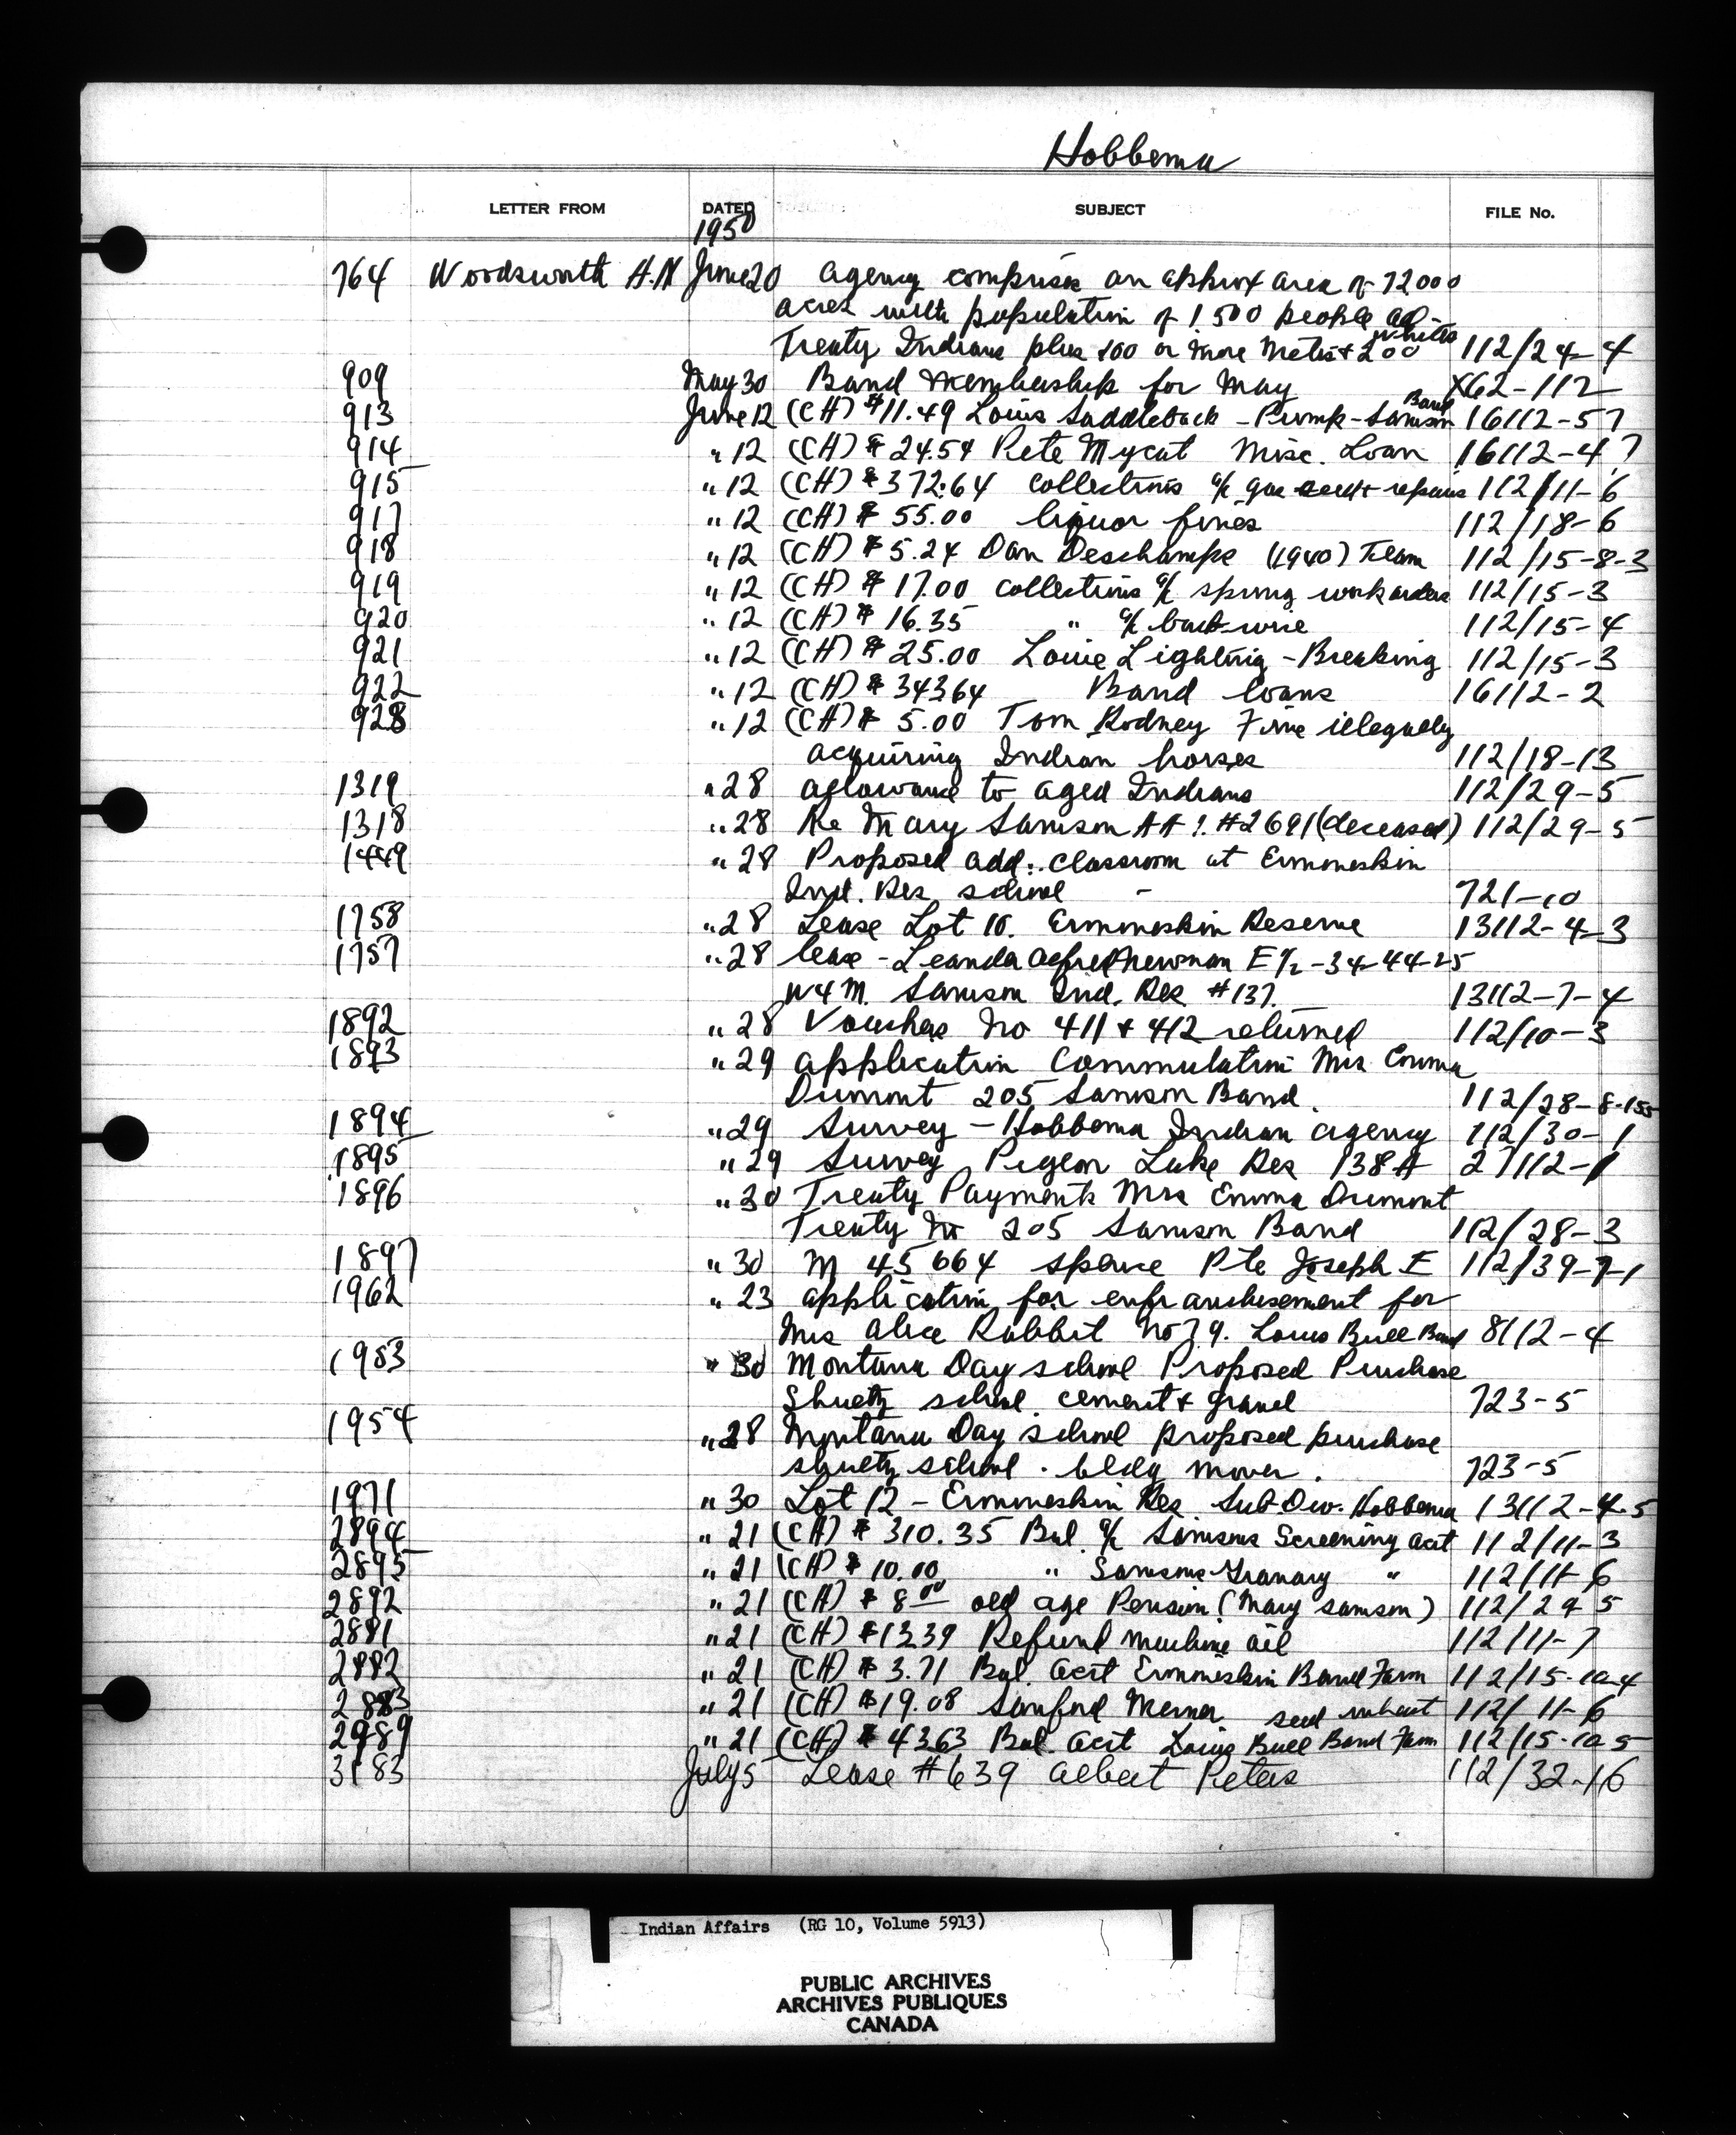 Hobbema
LETTER FROM DATED SUBJECT FILE No.
1950
764 Woodsworth H.N June 20 Agency comprises an approx area of 72000
acres with population of 1500 people all
Treaty Indians plus 100 or more Metis + 200 whites 112/24-4
909 May 30 Band Membership for May X62-112
913 June 12 (CH) $11.49 Louis Saddleback - Pump - Samson Band 16112-57
914 " 12 (CH) $24.54 Pete Mycat Misc. Loan 16112-47
915 " 12 (CH) $372.64 collections a/c gas repairs 112/11-6
917 " 12 (CH) $55.00 liquor fines 112/18-6
918 " 12 (CH) $5.24 Dan Deschamps (1940) Team 112/15-8-3
919 " 12 (CH) $17.00 collections a/c spring work orders 112/15-3
920 " 12 (CH) $16.35 " a/c barb wire 112/15-4
921 " 12 (CH) $25.00 Louie Lightning - Breaking 112/15-3
922 " 12 (CH) $34364 Band loans 16112-2
928 " 12 (CH) $5.00 Tom Rodney Fine illegually
acquiring Indian horses 112/18-13
1319 " 28 allowance to aged Indians 112/29-5
1318 " 28 Re Mary Samson #2691 (deceased) 112/29-5
1449 " 28 Proposed add: classroom at Ermineskin
Ind. Res school - 721-10
1758 " 28 Lease Lot 10. Ermineskin Reserve 13112-4-3
1757 " 28 lease - Leander Alfred Newman E 1/2-34-44-25
W4M. Samson Ind. Res #137. 13112-7-4
1892 " 28 Vouchers No 411 + 412 returned 112/10-3
1893 " 29 application Commutation Mrs Emma
Dumont 205 Samson Band. 112/28-8-155
1894 " 29 Survey - Hobbema Indian Agency 112/30-1
1895 " 29 Survey Pigeon Lake Res 138A 27112-1
1896 " 30 Treaty Payments Mrs Emma Dumont
Treaty No 205 Samson Band 112/28-3
1897 " 30 M 45664 Spence Pte Joseph E 112/39-7-1
1962 " 23 application for enfranchisement for
Mrs Alice Rabbit No 79. Louis Bull Band 8112-4
1953 " 30 Montana Day school Proposed Purchase
school cement + gravel 723-5
1954 " 28 Montana Day school proposed purchase
school. bldg mover. 723-5
1971 " 30 Lot 12 - Ermineskin Res Sub-Div. Hobbema 13112-4-5
2894 " 21 (CH) $310.35 Bal. a/c Samsons Screening acct 112/11-3
2895 " 21 (CH) $10.00 " Samsons Granary " 112/11-6
2892 " 21 (CH) $8.00 old age Pension (Mary Samson) 112/29-5
2881 " 21 (CH) $13.39 Refund machine oil 112/11-7
2882 " 21 (CH) $3.71 Bal. acct Ermineskin Band Farm 112/15-10-4
2883 " 21 (CH) $19.08 Sanford seed wheat 112/11-6
2989 " 21 (CH) $43.63 Bal. acct Louis Bull Band Farm 112/15-10-5
3183 July 5 Lease #639 Albert Peters 112/32-16
Indian Affairs (RG 10, Volume 5913)
PUBLIC ARCHIVES
ARCHIVES PUBLIQUES
CANADA